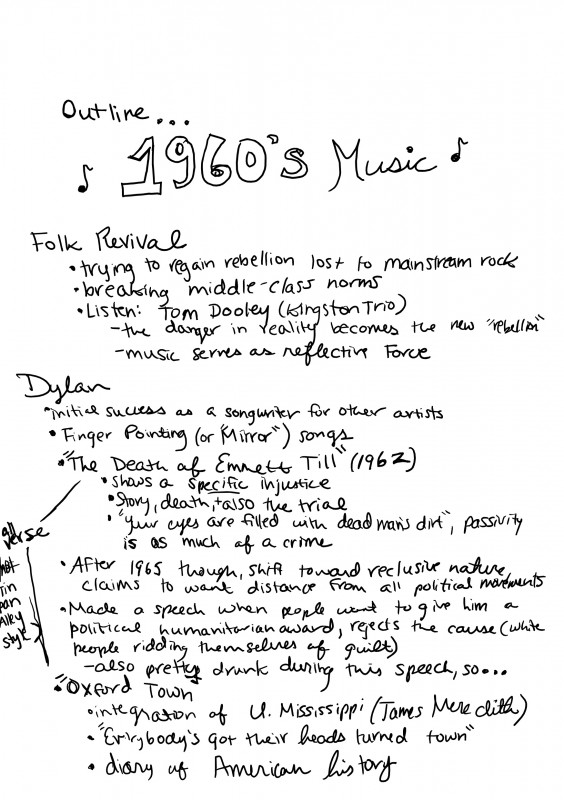 Outline...
1960's Music
Folk Revival
• trying to regain rebellion lost to mainstream rock
• breaking middle-class norms
• Listen: Tom Dooley (Kingston Trio)
– the danger in reality becomes the new "rebellion"
– music serves as reflective Force
Dylan
• initial success as a songwriter for other artists
• Finger Pointing (or "Mirror") songs
• "The Death of Emmett Till" (1962)
• shows a specific injustice
• Story, death, + also the trial
• "your eyes are filled with dead man's dirt", passivity
is as much of a crime
• After 1965 though, shift toward reclusive nature,
claims to want distance from all political movements
• Made a speech when people want to give him a
political humanitarian award, rejects the cause (white
people ridding themselves of guilt)
– also pretty drunk during this speech, so...
all
verse
not
Tin
pan
Alley
style
• "Oxford Town
• integration of U. Mississippi (James Meredith)
• "Ev'rybody's got their heads turned town"
• diary of American history